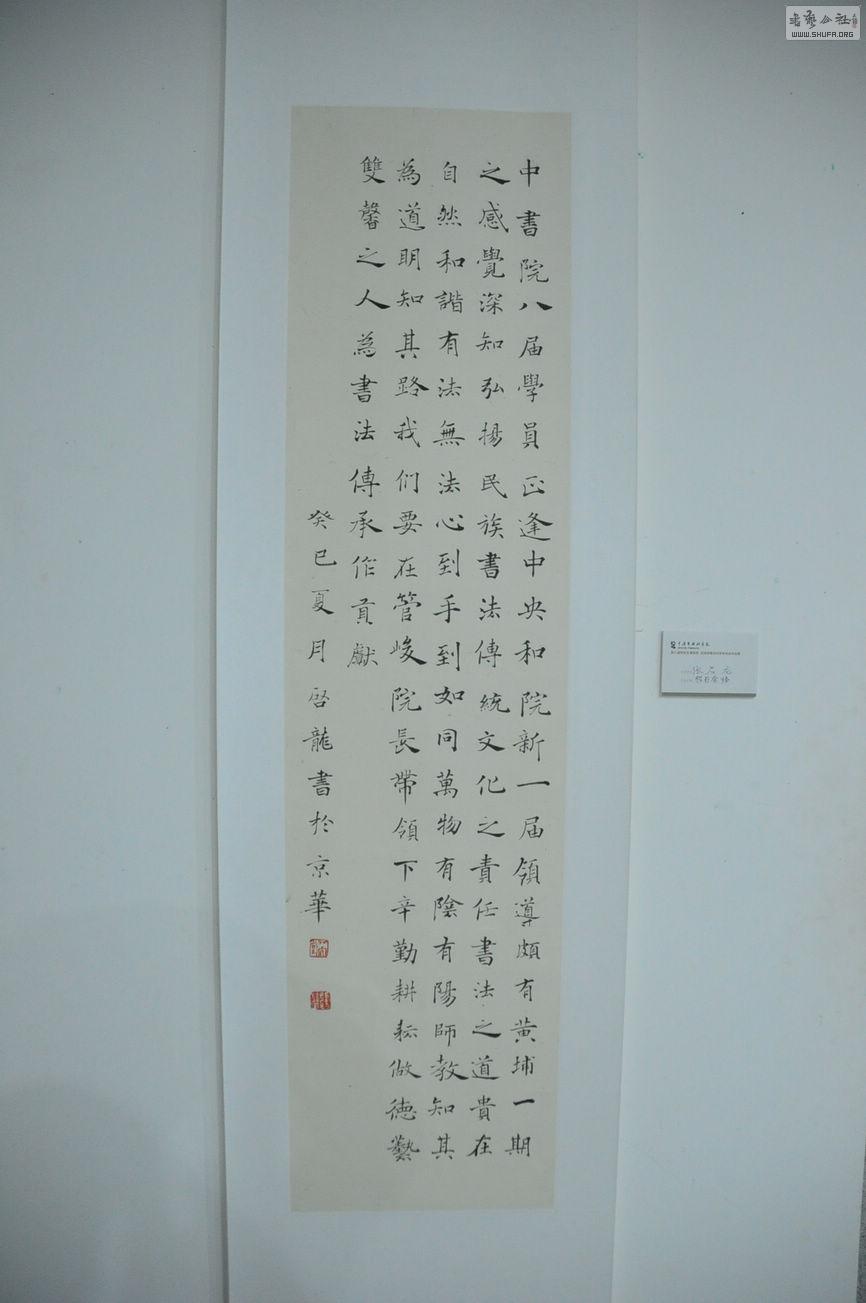 中書院八届學員正逢中央和院新一届領導頗有黄埔一期
之感覺深知弘揚民族書法傳統文化之責任書法之道貴在
自然和諧有法無法心到手到如同萬物有陰有陽師教知其
為道明知其路我们要在管峻院長帶領下辛勤耕耘做德藝
雙馨之人為書法傳承作貢獻
癸巳夏月啓龍書於京華
WWW.SHUFA.ORG